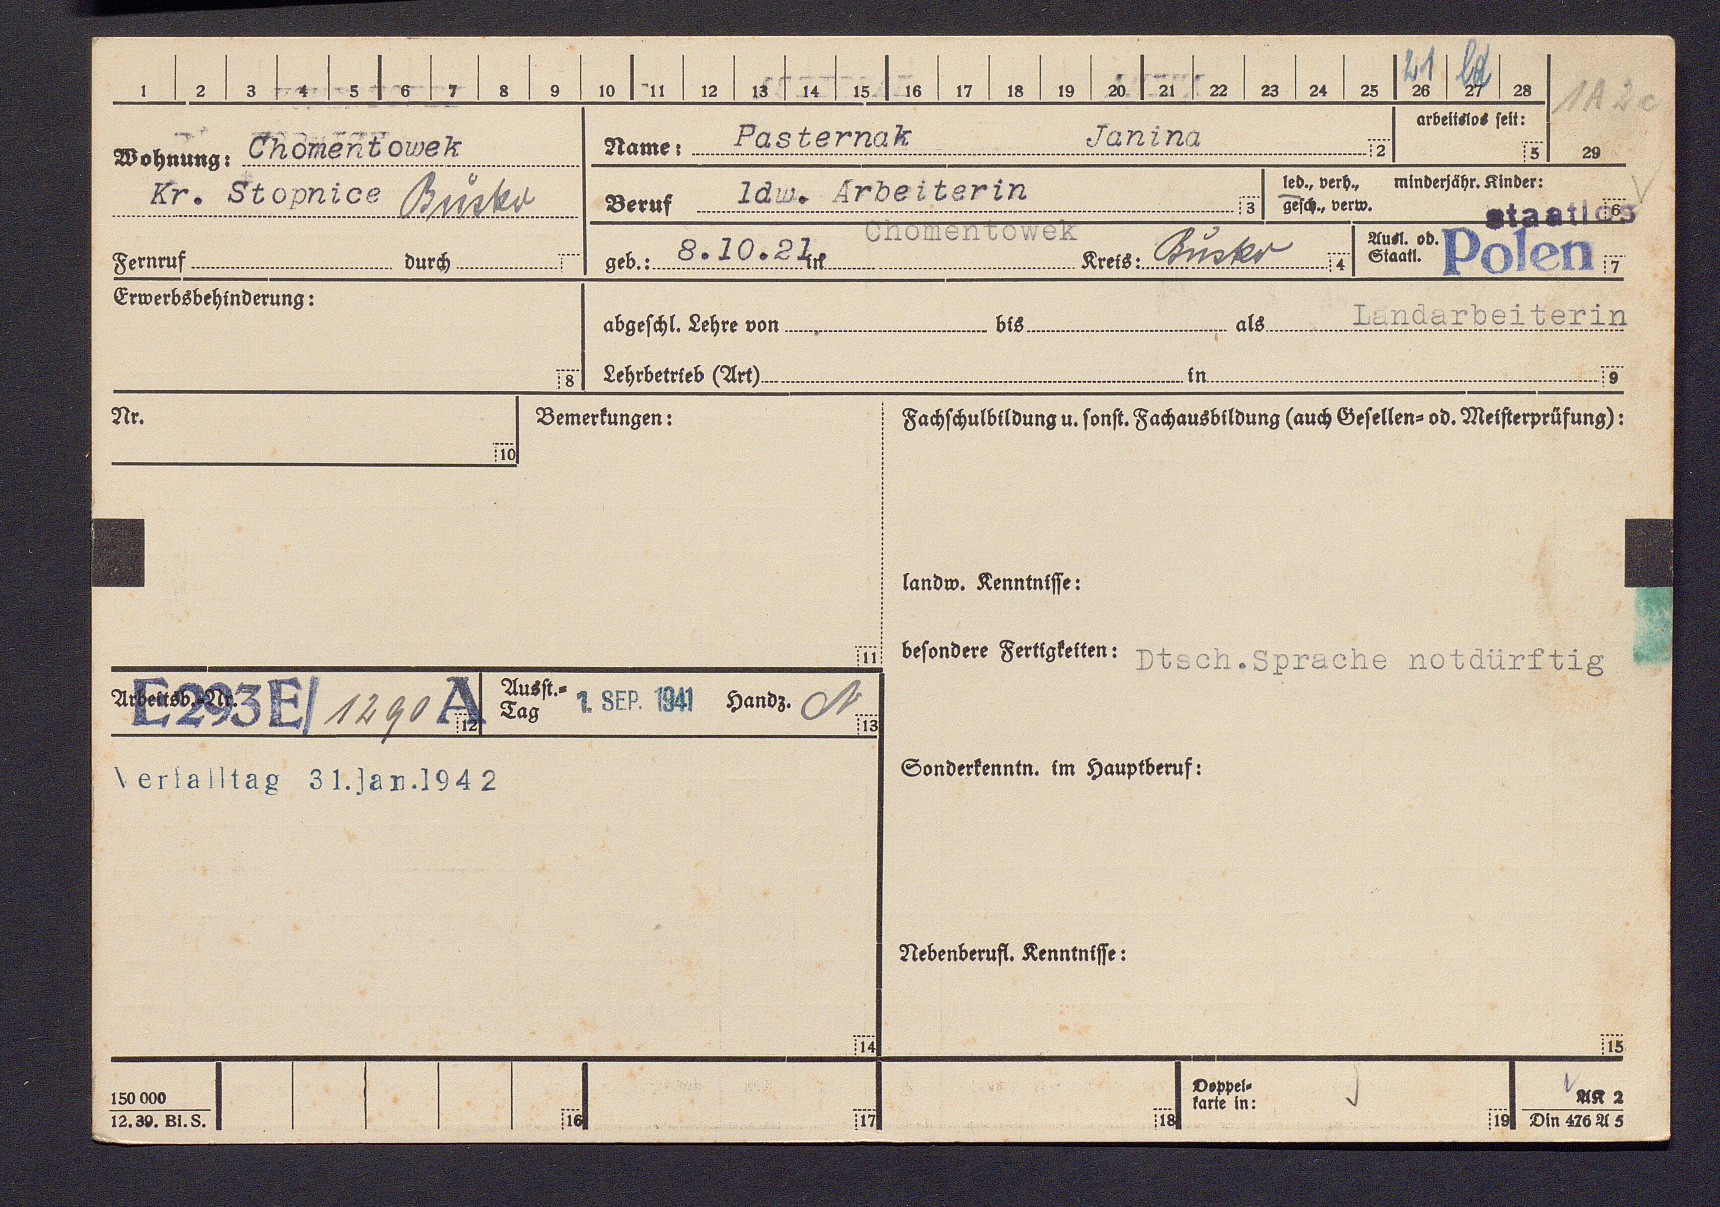 1 2 3 4 5 6 7 8 9 10 11 12 13 14 15 16 17 18 19 20 21 22 23 24 25 26 27 28
21 ld
1A 2c
29
Wohnung: Chomentowek
Kr. Stopnice Busko
Name: Pasternak Janina 2
arbeitslos seit: 5
Beruf ldw. Arbeiterin 3
led., verh., minderjähr. Kinder:
gesch., verw. 6
staatlos
Fernruf durch
geb.: 8.10.21. in Chomentowek Kreis: Busko 4
Ausl. od. Staatl. Polen 7
Erwerbsbehinderung: 8
abgeschl. Lehre von bis als Landarbeiterin
Lehrbetrieb (Art) in 9
Nr. 10
Bemerkungen: 11
Fachschulbildung u. sonst. Fachausbildung (auch Gesellen= od. Meisterprüfung):
landw. Kenntnisse:
besondere Fertigkeiten: Dtsch.Sprache notdürftig
Arbeitsb.-Nr. E293E/1290 A 12
Ausst.=Tag 1. SEP. 1941 Handz. 13
Verfalltag 31.Jan.1942
Sonderkenntn. im Hauptberuf:
Nebenberufl. Kenntnisse:
14
15
150 000
12. 39. Bl. S.
16
17
18
Doppel=
karte in: 19
AK 2
Din 476 A 5